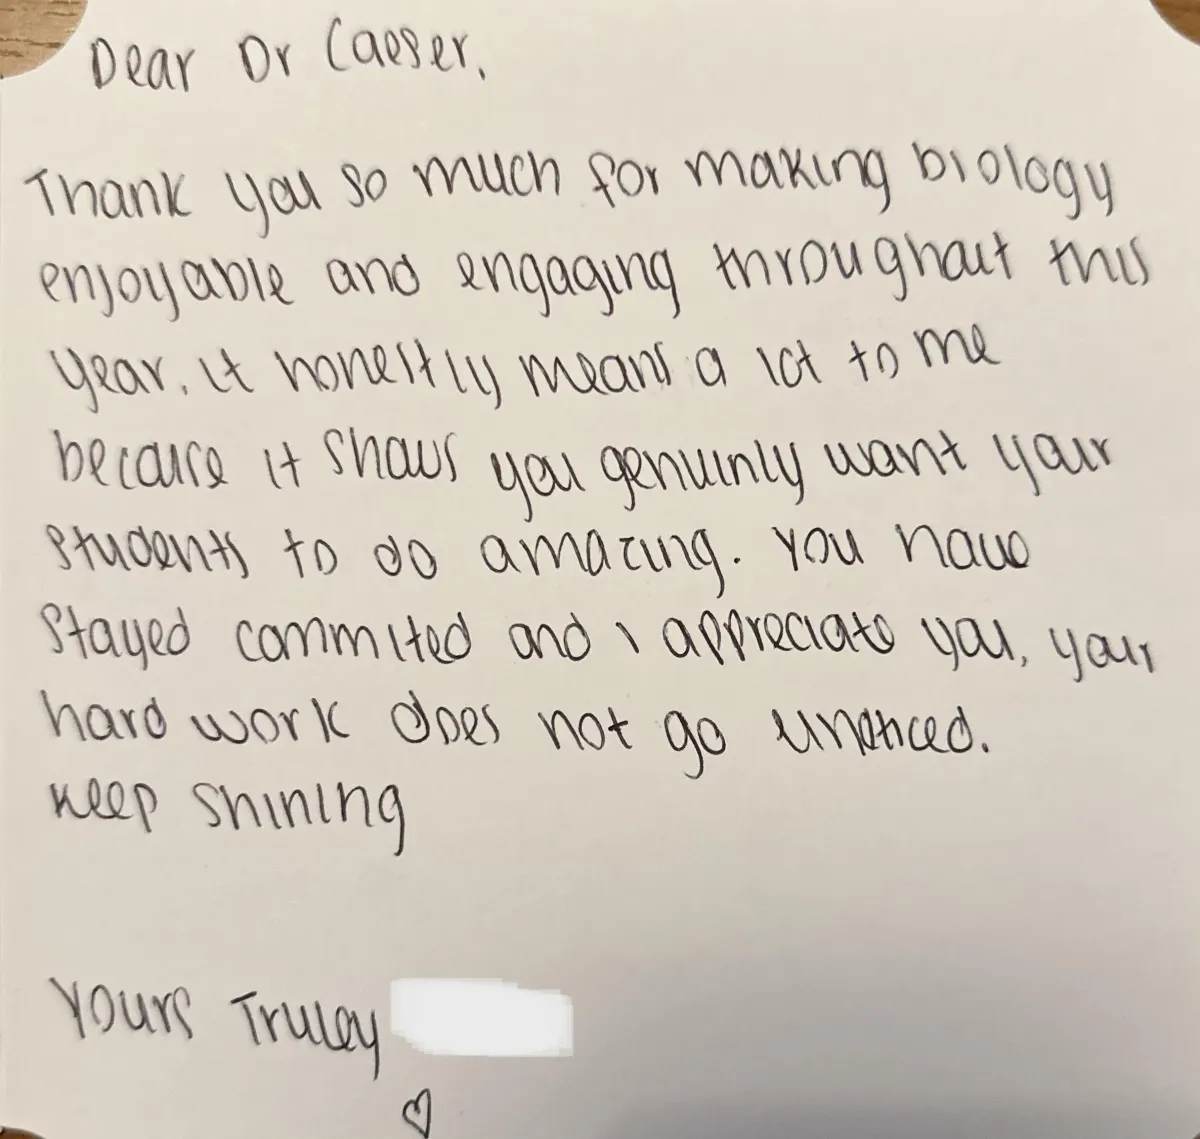 Dear Dr Caeser,
Thank you so much for making biology
enjoyable and engaging throughout this
year. it honestly means a lot to me
because it shows you genuinly want your
students to do amazing. You have
stayed commited and i appreciate you, your
hard work does not go unoticed.
keep shining
Yours Truley